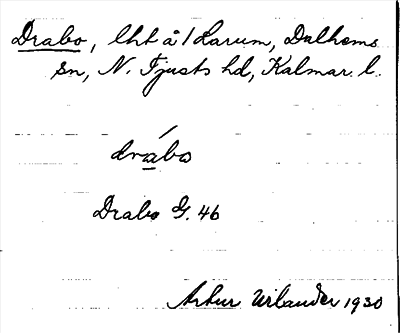 Drabo, lht å 1 Larum, Dalhems
sn, N. Tjusts hd, Kalmar l.
drábo
Drabo G. 46
Artur Wilander 1930